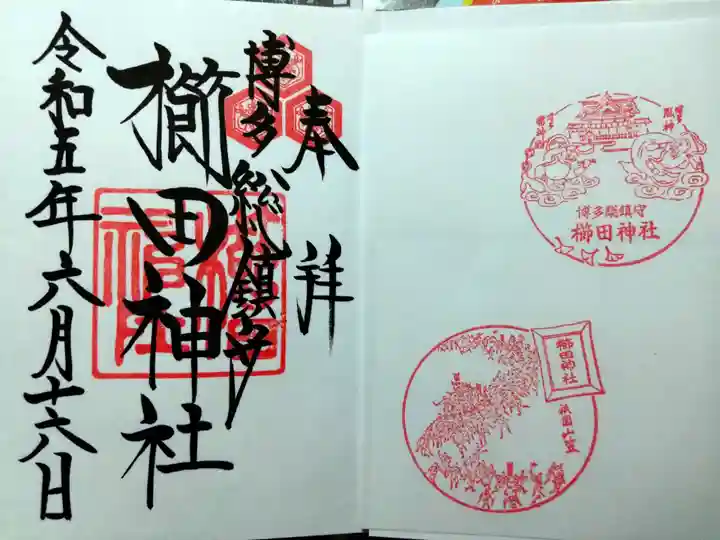 奉拝
博多総鎮守
櫛田神社
令和五年六月十六日
風神
雷神
博多総鎮守
櫛田神社
櫛田神社
祇園山笠